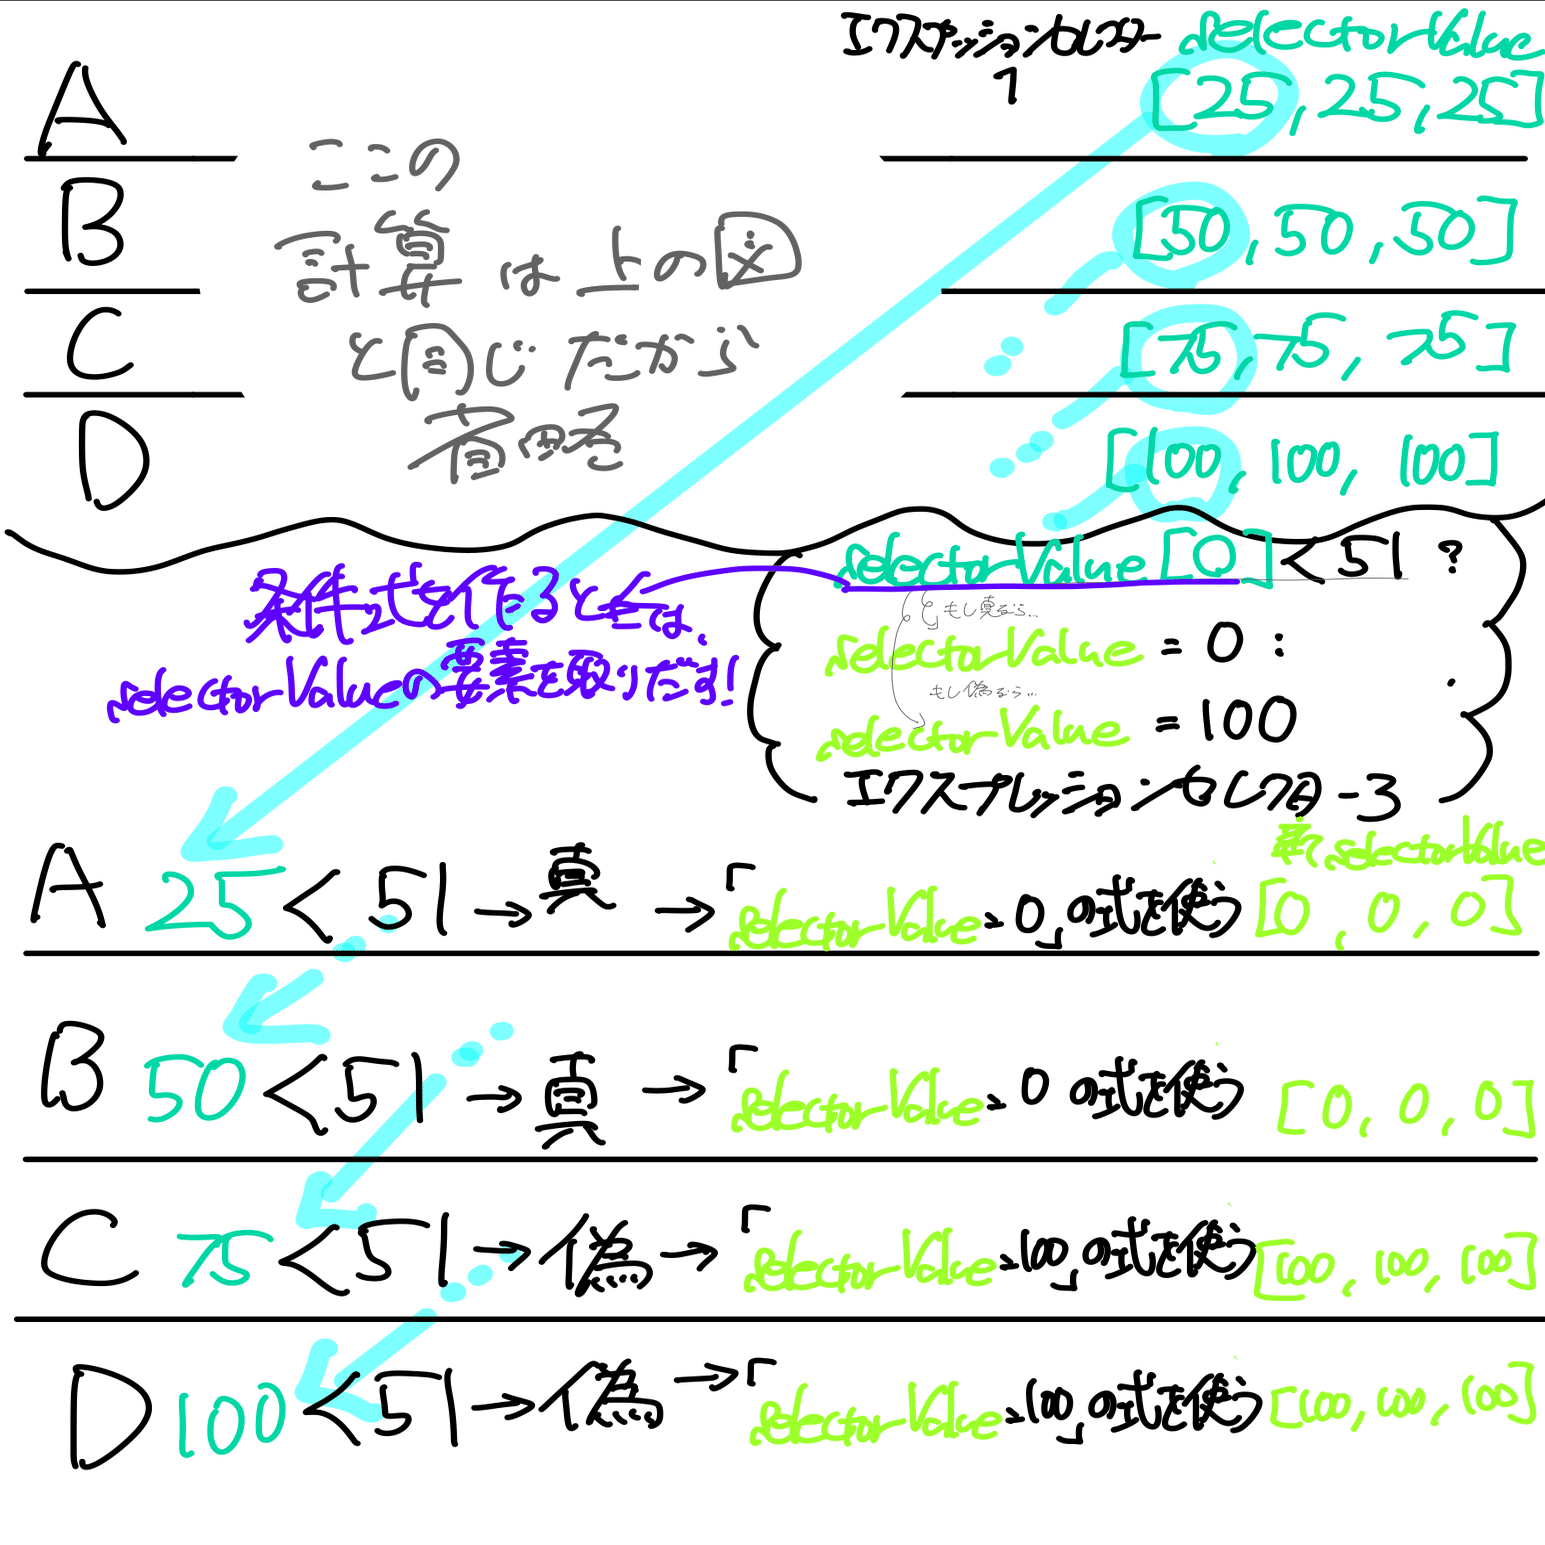 エクスプレッションセレクター selectorValue
1 [25,25,25]
A
B [50,50,50]
C [75,75,75]
D [100,100,100]
ここの
計算は上の図
と同じだから
省略
selectorValue[0]<51?
もし真なら...
selectorValue=0:
もし偽なら...
selectorValue=100
エクスプレッションセレクター3
条件式を作るときは、
selectorValueの要素を取りだす!
新selectorValue
A 25<51→真→「selectorValue=0」の式を使う [0,0,0]
B 50<51→真→「selectorValue=0の式を使う [0,0,0]
C 75<51→偽→「selectorValue=100」の式を使う [100,100,100]
D 100<51→偽→「selectorValue=100」の式を使う [100,100,100]